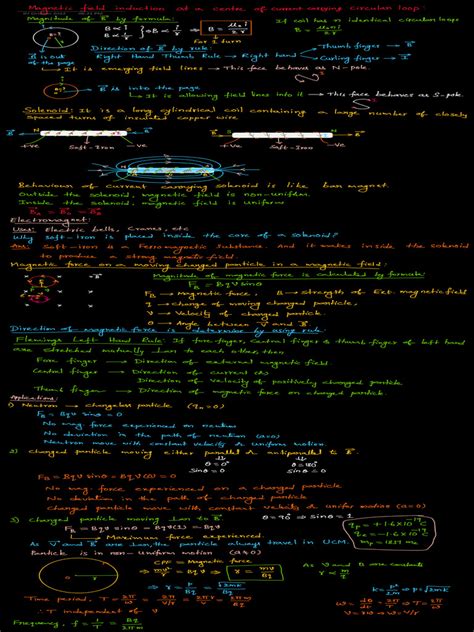 Magnetic field induction at a centre of current carrying circular loop:
Magnitude of B by formula:
If coil has n identical circular loops
B ∝ i
B ∝ 1/r
B = μ₀ i / 2r
For 1 turn
Direction of B by rule:
Right Hand Thumb Rule → Right hand
Thumb finger → B
Curling finger → I
B is out of the page
It is emerging field lines → This face behave as N-pole.
B is into the page
It is allowing field lines into it → This face behaves as S-pole.
Solenoid: It is a long cylindrical coil containing a large number of closely
spaced turns of insulated copper wire.
B S N B
+ve Soft-Iron -ve
+ve Soft-Iron -ve
Behaviour of current carrying solenoid is like bar magnet.
Outside the solenoid, magnetic field is non-uniform.
Inside the solenoid, magnetic field is uniform
Electromagnet:
Uses: Electric bells, Cranes, etc
Why soft-Iron is placed inside the core of a solenoid?
Ans: Soft-Iron is a Ferromagnetic Substance. And it makes inside the solenoid
to produce a strong magnetic field.
Magnetic force on a moving charged particle in a magnetic field:
Magnitude of magnetic force is calculated by formula:
F_B = BqV sinθ
F_B → Magnetic force, B → strength of Ext. magnetic field
q → charge of moving charged particle,
V → Velocity of charged particle.
θ → Angle between V and B.
Direction of magnetic force is determine by using rule:
Flemings Left Hand Rule: If fore finger, Central finger & thumb finger of left hand
are stretched mutually Lar to each other then,
Fore finger → Direction of external magnetic field
Central finger → Direction of current or
Direction of Velocity of positively charged particle
Thumb finger → Direction of magnetic force on charged particle.
Applications:
1) Neutron → chargeless particle (q_n = 0)
F_B = BqV sinθ = 0
No mag. force experienced on neutron
No deviation in the path of neutron (a=0)
Neutron move with constant velocity & Uniform motion.
2) charged particle moving either parallel or antiparallel to B.
θ = 0° θ = 180°
sinθ = 0 sinθ = 0
F_B = BqV sinθ = BqV(0) = 0
No mag force experienced on a charged particle
No deviation in the path of charged
charged particle move with constant velocity & unifor motion
3) Charged particle moving Lar to B. θ = 90° ⇒ sinθ = 1
F_B = BqV sinθ = BqV(1) = BqV
Maximum force experienced.
As V and B are Lar, the particle always travel in UCM.
Particle is in non-uniform motion (a≠0)
CPF = Magnetic force
mv²/r = BqV ⇒ r = mv/Bq
As V and B are constants
r ∝ m/q
Time period, T = 2π/ω
∴ T independent of V
Frequency, f = 1/T = Bq/2πm